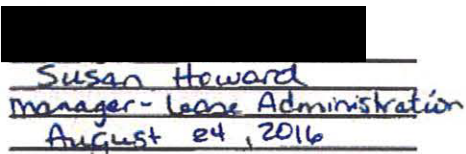 Susan Howard
manager - Lease Administration
August 24, 2016